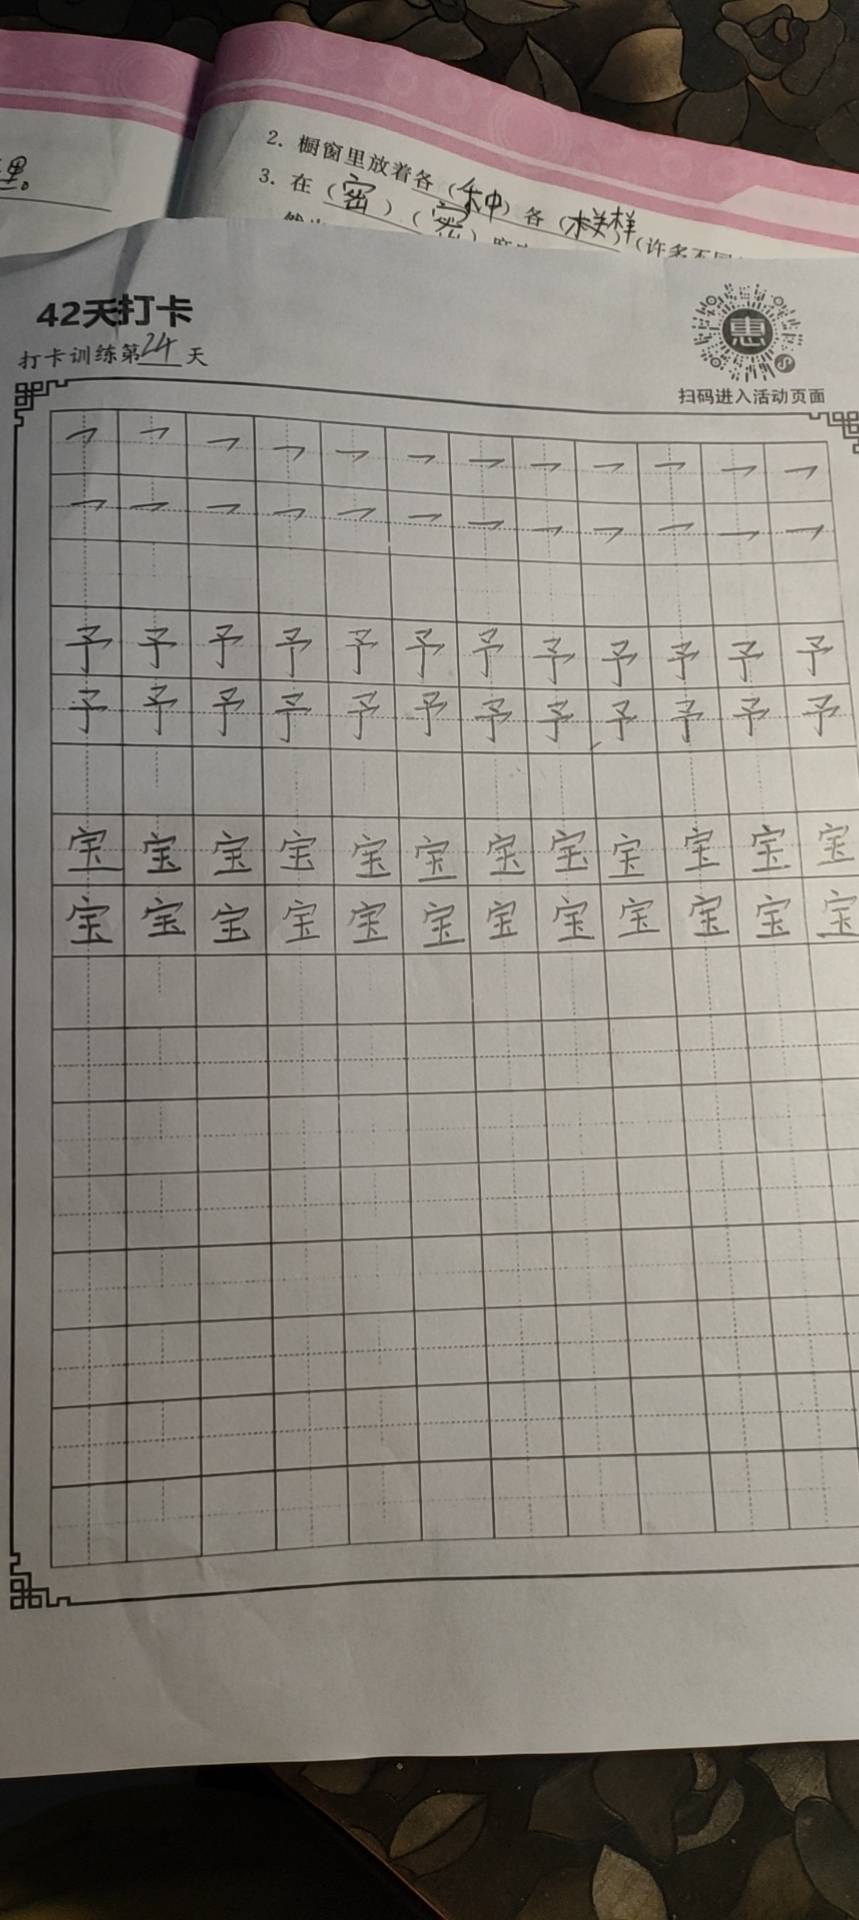 里。
2. 橱窗里放着各(种)各(样样
3. 在(密)(密)
(许多不同
42天打卡
打卡训练第24天
惠
扫码进入活动页面
㇇ ㇇ ㇇ ㇇ ㇇ ㇇ ㇇ ㇇ ㇇ ㇇ ㇇ ㇇
㇇ ㇇ ㇇ ㇇ ㇇ ㇇ ㇇ ㇇ ㇇ ㇇ ㇇ ㇇
予 予 予 予 予 予 予 予 予 予 予 予
予 予 予 予 予 予 予 予 予 予 予 予
宝 宝 宝 宝 宝 宝 宝 宝 宝 宝 宝 宝
宝 宝 宝 宝 宝 宝 宝 宝 宝 宝 宝 宝